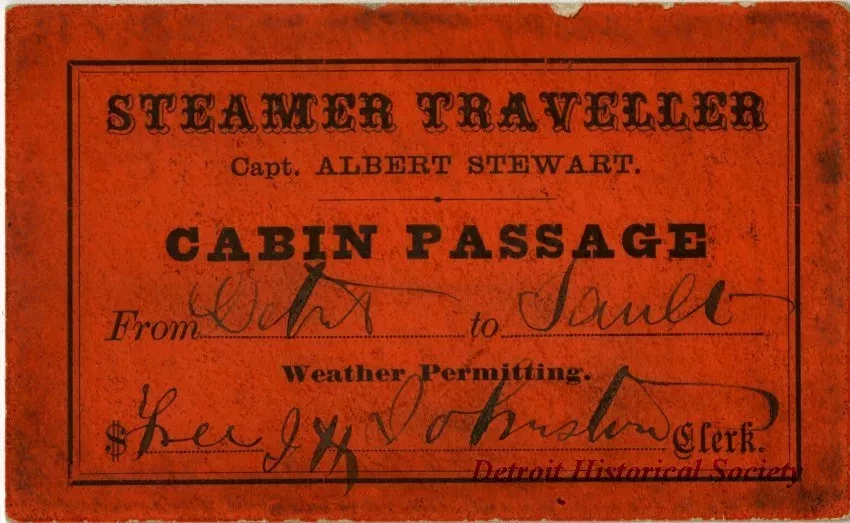 STEAMER TRAVELLER
Capt. ALBERT STEWART.
CABIN PASSAGE
From Detrt to Sault
Weather Permitting.
$ Free J H Johnston Clerk.
Detroit Historical Society